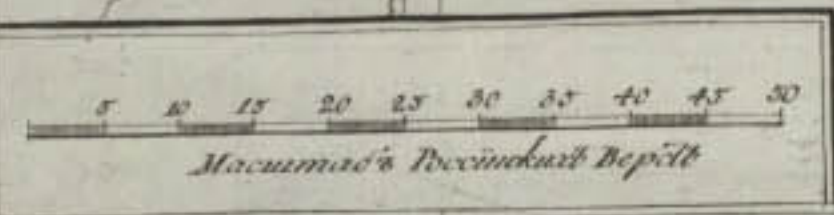 5 10 15 20 25 30 35 40 45 50
Масштабъ Россiискихъ Верстъ